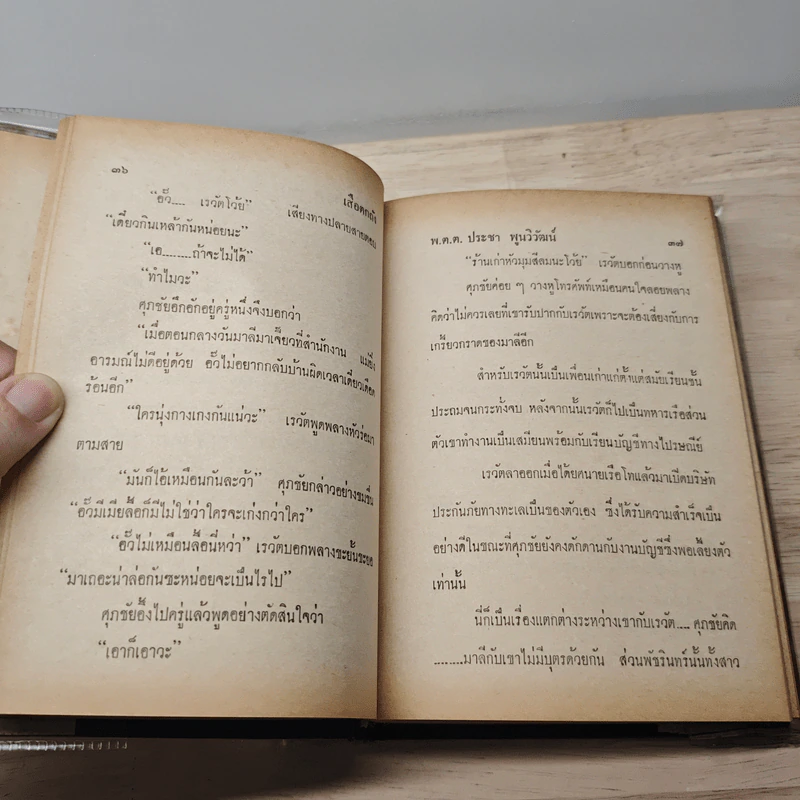 ๓๖
เสือตกถัง
“อั๊ว.... เรวัตโว้ย” เสียงทางปลายสายตอบ
“เดี๋ยวกินเหล้ากันหน่อยนะ”
“เอ........ถ้าจะไม่ได้”
“ทำไมวะ”
ศุภชัยอึกอักอยู่ครู่หนึ่งจึงบอกว่า
“เมื่อตอนกลางวันมาลีมาเจี๊ยวที่สำนักงาน แม่ยิ่ง
อารมณ์ไม่ดีอยู่ด้วย อั๊วไม่อยากกลับบ้านผิดเวลาเดี๋ยวเดือด
ร้อนอีก”
“ใครนุ่งกางเกงกันแน่วะ” เรวัตพูดพลางหัวร่อมา
ตามสาย
“มันก็ไอ้เหมือนกันละว้า” ศุภชัยกล่าวอย่างขมขื่น
“อั๊วมีเมียลื้อก็มีไม่ใช่ว่าใครจะเก่งกว่าใคร”
“อั๊วไม่เหมือนลื้อนี่หว่า” เรวัตบอกพลางชะยั้นชะยอ
“มาเถอะน่าล่อกันซะหน่อยจะเป็นไรไป”
ศุภชัยอึ้งไปครู่แล้วพูดอย่างตัดสินใจว่า
“เอาก็เอาวะ”
พ.ต.ต. ประชา พูนวิวัฒน์
๓๗
“ร้านเก่าหัวมุมสีลมนะโว้ย” เรวัตบอกก่อนวางหู
ศุภชัยค่อย ๆ วางหูโทรศัพท์เหมือนคนใจลอยพลาง
คิดว่าไม่ควรเลยที่เขารับปากกับเรวัตเพราะจะต้องเสี่ยงกับการ
เกรี้ยวกราดของมาลีอีก
สำหรับเรวัตนั้นเป็นเพื่อนเก่าแก่ตั้งแต่สมัยเรียนชั้น
ประถมจนกระทั่งจบ หลังจากนั้นเรวัตก็ไปเป็นทหารเรือส่วน
ตัวเขาทำงานเป็นเสมียนพร้อมกับเรียนบัญชีทางไปรษณีย์
เรวัตลาออกเมื่อได้ยศนายเรือโทแล้วมาเปิดบริษัท
ประกันภัยทางทะเลเป็นของตัวเอง ซึ่งได้รับความสำเร็จเป็น
อย่างดีในขณะที่ศุภชัยยังคงดักดานกับงานบัญชีซึ่งพอเลี้ยงตัว
เท่านั้น
นี่ก็เป็นเรื่องแตกต่างระหว่างเขากับเรวัต.... ศุภชัยคิด
........มาลีกับเขาไม่มีบุตรด้วยกัน ส่วนพัชรินทร์นั้นทั้งสาว